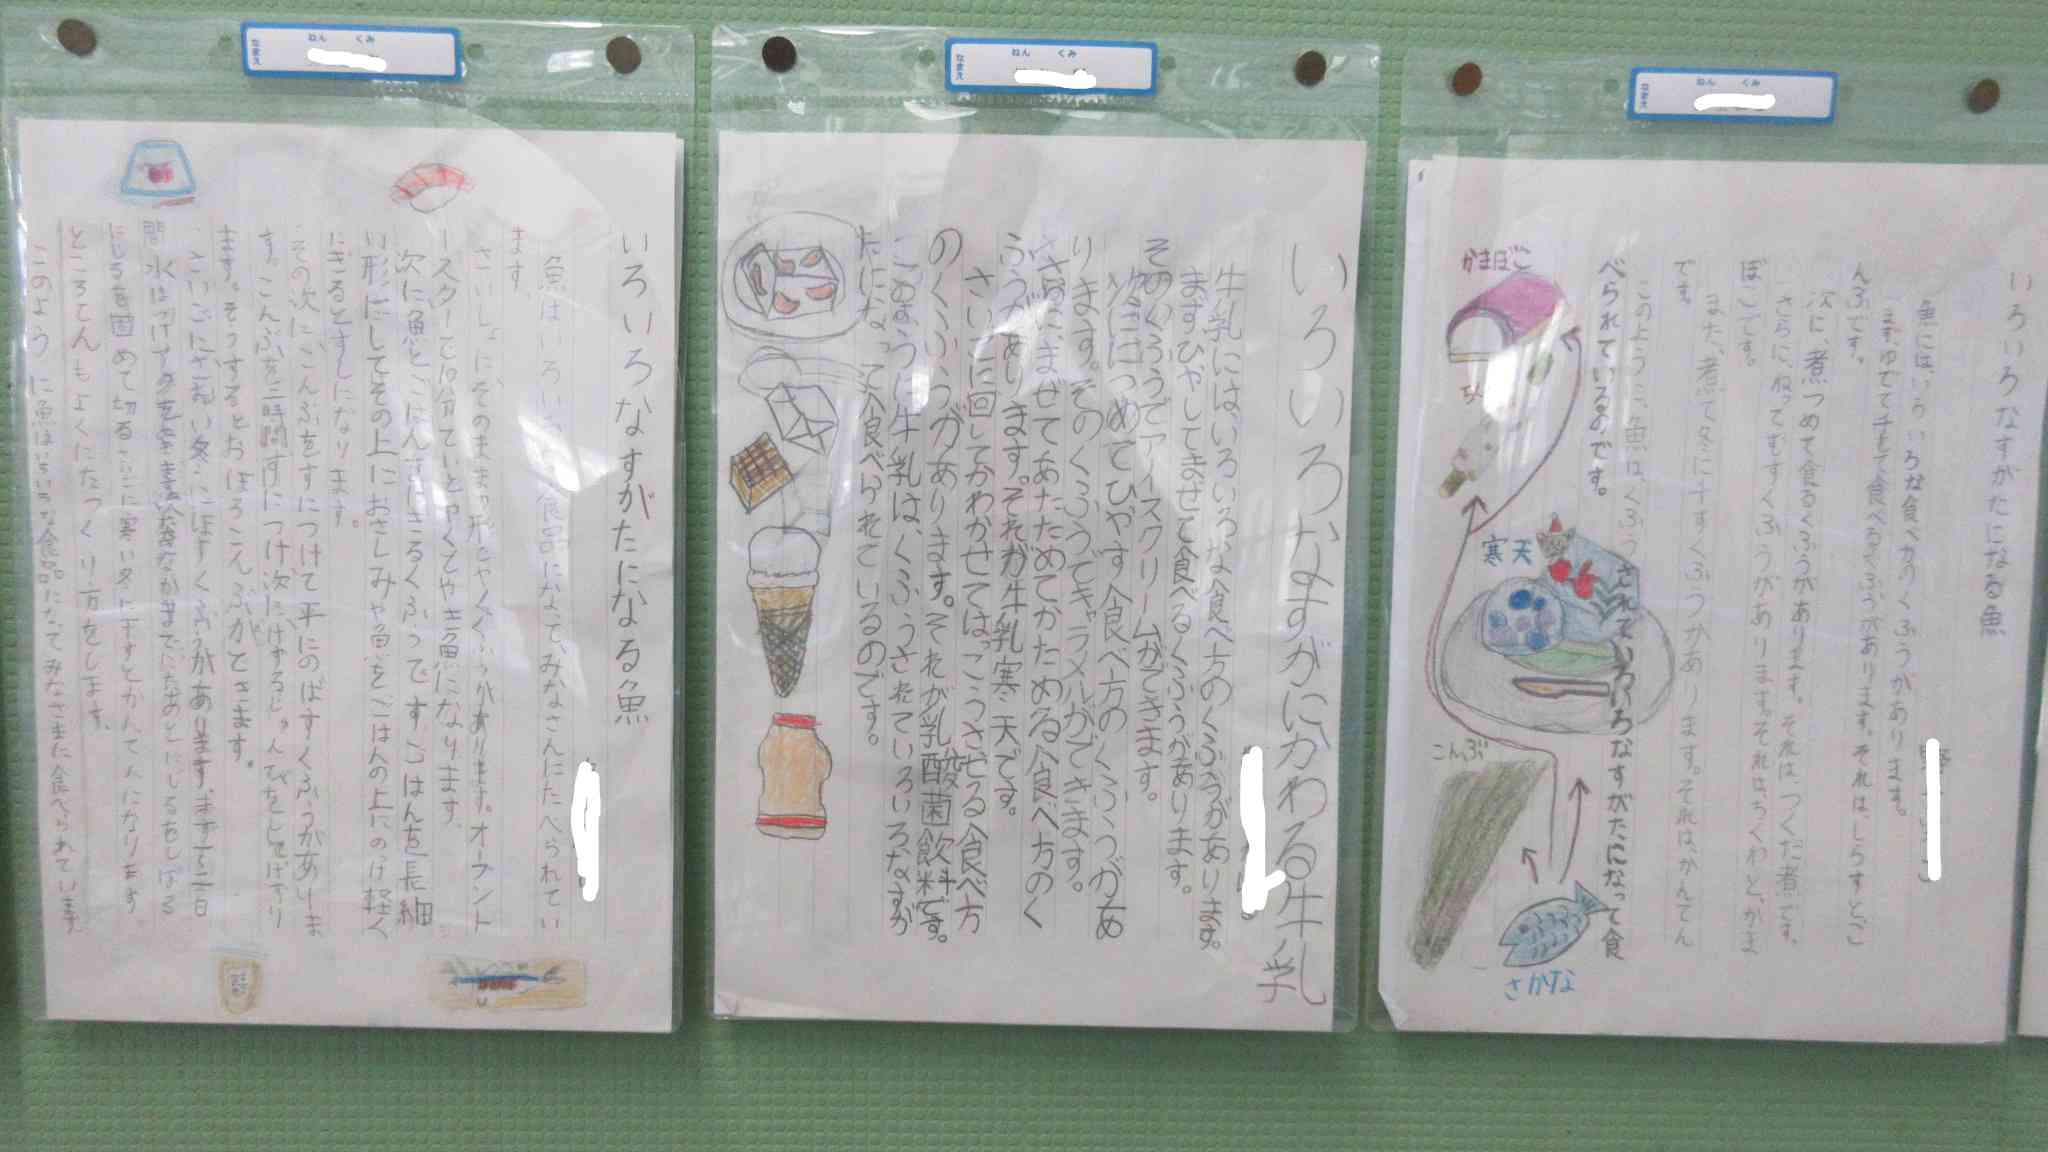 ねん くみ
なまえ
いろいろなすがたになる魚
魚はいろいろな食品になってみなさんにたべられてい
ます。
さいしょにそのまま形じゃくくふうがあります。オーブント
ースターで10分ていどやくとやき魚になります。
次に魚とごはんをにぎるくふうです。ごはんを長細
い形にしてその上におさしみや魚をごはんの上にのけ軽く
にぎるとすしになります。
その次にこんぶをすにつけて平にのばすくふうがありま
す。こんぶを二時間すにつけ次に
ます。そうするとおぼろこんぶができます。
さいごにさむい冬にほすくふうがあります。
間水につけアクを
にじるを固めて切る さいごに寒い冬に干すとかんてんになります
ところてんもよくにたつくり方をします。
このように魚はいろいろな食品になってみなさまに食べられています。
ねん くみ
なまえ
いろいろなすがにかわる牛乳
牛乳には、いろいろな食べ方のくふうがあります。
まずひやしてまぜて食べるくふうがあります。
そのくふうでアイスクリームができます。
次ににつめてひやす食べ方のくふうがあ
ります。そのくふうでキャラメルができます。
さらに、まぜてあたためてかためる食べ方のく
ふうがあります。それが牛乳寒天です。
さいごに回してかわかせてはっこうさせる食べ方
のくふうがあります。それが乳酸菌飲料です。
このように牛乳は、くふうされていろいろなすが
たになって食べられているのです。
ねん くみ
なまえ
いろいろなすがたになる魚
魚には、いろいろな食べ方のくふうがあります。
まず、ゆでて干して食べるくふうがあります。それは、しらすと、こ
んぶです。
次に、煮つめて食るくふうがあります。それはつくだ煮です。
さらに、ねってむすくふうがあります。それは、ちくわと、かま
ぼこです。
また、煮て冬に干すくふうがあります。それは、かんてん
です。
このように、魚は、くふうされていろいろなすがたになって食
べられているのです。
かまぼこ
寒天
こんぶ
さかな